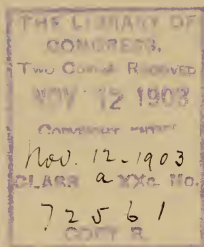 THE LIBRARY OF
CONGRESS,
Two Copies Received
NOV 12 1903
Copyright Entry
Nov. 12-1903
CLASS a XXc. No.
72561
COPY B.